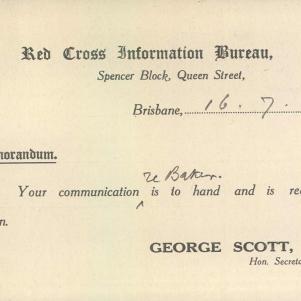 Red Cross Information Bureau,
Spencer Block, Queen Street,
Brisbane, 16. 7.
morandum.
re Baker.
Your communication ^ is to hand and is re
n.
GEORGE SCOTT,
Hon. Secreta